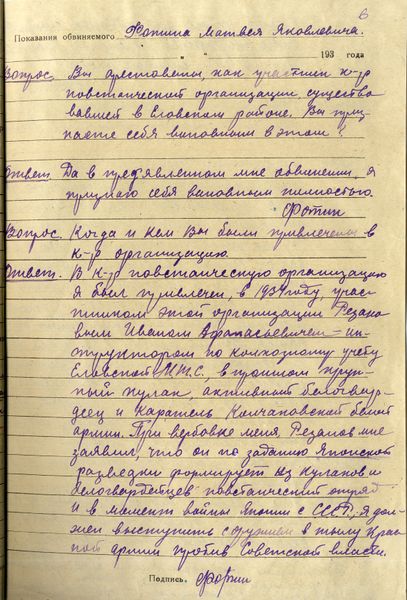 6
Показания обвиняемого Фотина Матвея Яковлевича.
" " 193 года
Вопрос. Вы арестованы, как участник к-р
повстанческой организации, существо
вавшей в Еловском районе. Вы приз-
наете себя виновным в этом?
Ответ. Да в предявленном мне обвинении, я
признаю себя виновным полностью.
Фотин
Вопрос. Когда и кем Вы были привлечены в
к-р организацию.
Ответ. В к-р повстанческую организацию
я был привлечен, в 1937 году, учас-
тником этой организации Резано-
вым Иваном Афанасьевичем = ин-
структором по колхозному учету
Еловской М.Т.С., в прошлом круп-
ный кулак, активный белогвар-
деец и каратель Колчаковской белой
армии. При вербовке меня, Резанов мне
заявил, что он по заданию Японской
разведки формирует из кулаков и
белогвардейцев повстанческий отряд
и в момент войны Японии с СССР, я дол-
жен выступить с оружием в тылу Крас-
ной армии против Советской власти.
Подпись. Фотин